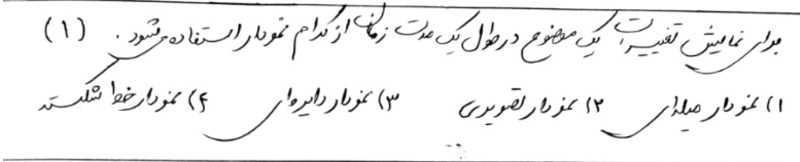 برای نمایش تغییرات یک موضوع در طول یک مدت زمان از کدام نمودار استفاده می‌شود. (۱)
۱) نمودار میله‌ای ۲) نمودار تصویری ۳) نمودار دایره‌ای ۴) نمودار خط شکسته